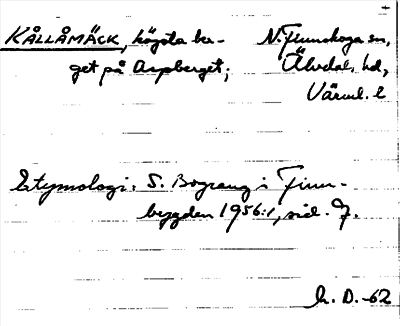 KÅLLÅMÄCK, högsta ber-
get på Aspberget;
N. Finnskoga sn,
Älvdal. hd,
Värml. l
Etymologi: S. Bograng i Finn-
bygden 1956:1, sid. 7.
h. D. -62